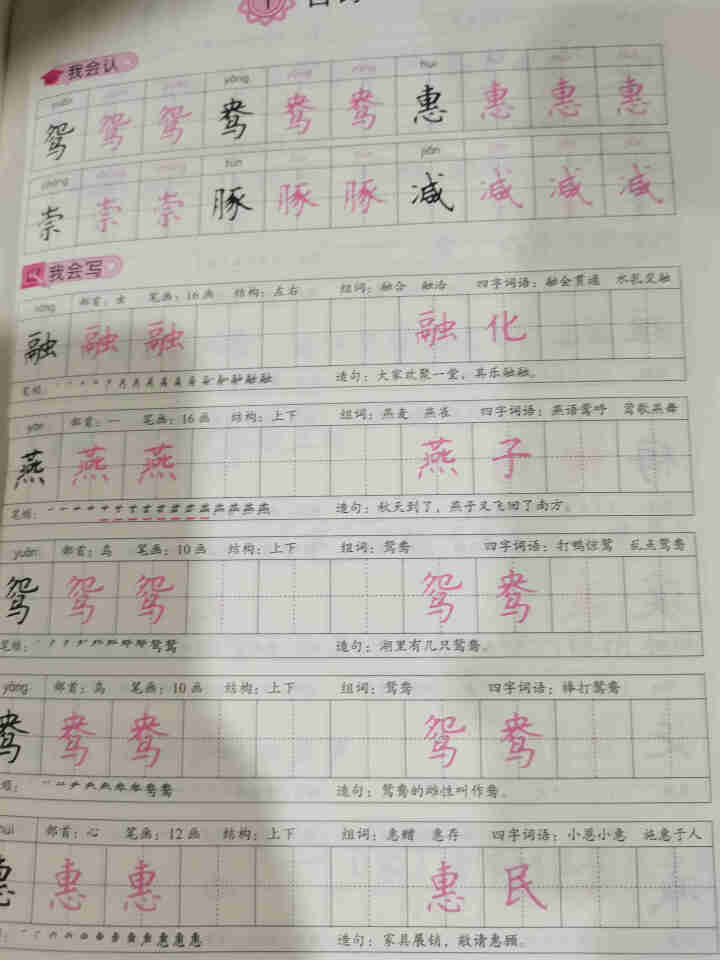 1
我会认
yuān yāng huì
鸳 鸳 鸳 鸯 鸯 鸯 惠 惠 惠 惠
chóng tún jiǎn
崇 崇 崇 豚 豚 豚 减 减 减 减
我会写
róng 部首：虫 笔画：16画 结构：左右 组词：融合 融洽 四字词语：融会贯通 水乳交融
融 融 融 融 化
笔顺： 造句：大家欢聚一堂，其乐融融。
yàn 部首：一 笔画：16画 结构：上下 组词：燕麦 燕雀 四字词语：燕语莺呼 莺歌燕舞
燕 燕 燕 燕 子
笔顺： 造句：秋天到了，燕子又飞回了南方。
yuān 部首：鸟 笔画：10画 结构：上下 组词：鸳鸯 四字词语：打鸭惊鸳 乱点鸳鸯
鸳 鸳 鸳 鸳 鸯
笔顺： 造句：湖里有几只鸳鸯。
yāng 部首：鸟 笔画：10画 结构：上下 组词：鸳鸯 四字词语：棒打鸳鸯
鸯 鸯 鸯 鸳 鸯
顺： 造句：鸳鸯的雌性叫作鸯。
huì 部首：心 笔画：12画 结构：上下 组词：惠赠 惠存 四字词语：小恩小惠 施惠于人
惠 惠 惠 惠 民
造句：家具展销，敬请惠顾。